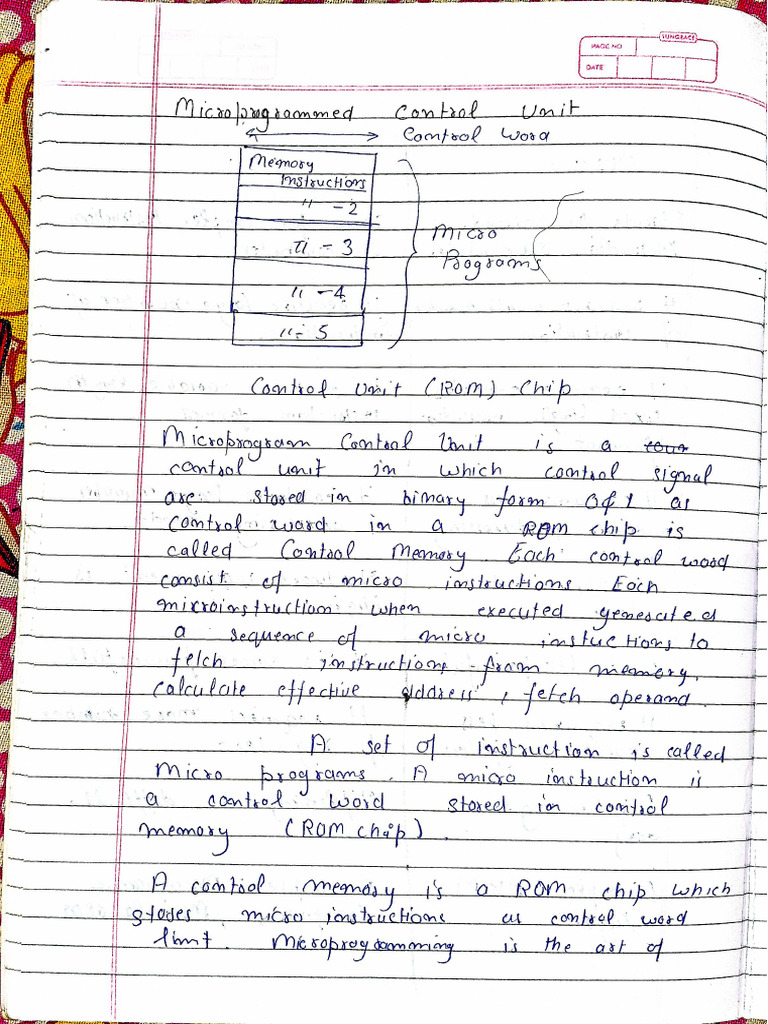 SUNGRACE
PAGE NO
DATE
Microprogrammed Control Unit
Control Word
Memory
Instructions
" - 2
" - 3
" - 4
" - 5
Micro
Programs
Control Unit (ROM) Chip
Microprogram Control Unit is a
control unit in which control signal
are stored in binary form 0 & 1 as
control word in a ROM chip is
called Control Memory. Each control word
consist of micro instructions. Each
microinstruction when executed generated
a sequence of micro instuctions to
fetch instructions from memory,
calculate effective address, fetch operand.
A set of instruction is called
Micro programs. A micro instruction is
a control word stored in control
memory (ROM chip).
A control memory is a ROM chip which
stores micro instructions as control word
limit. Microprogramming is the art of